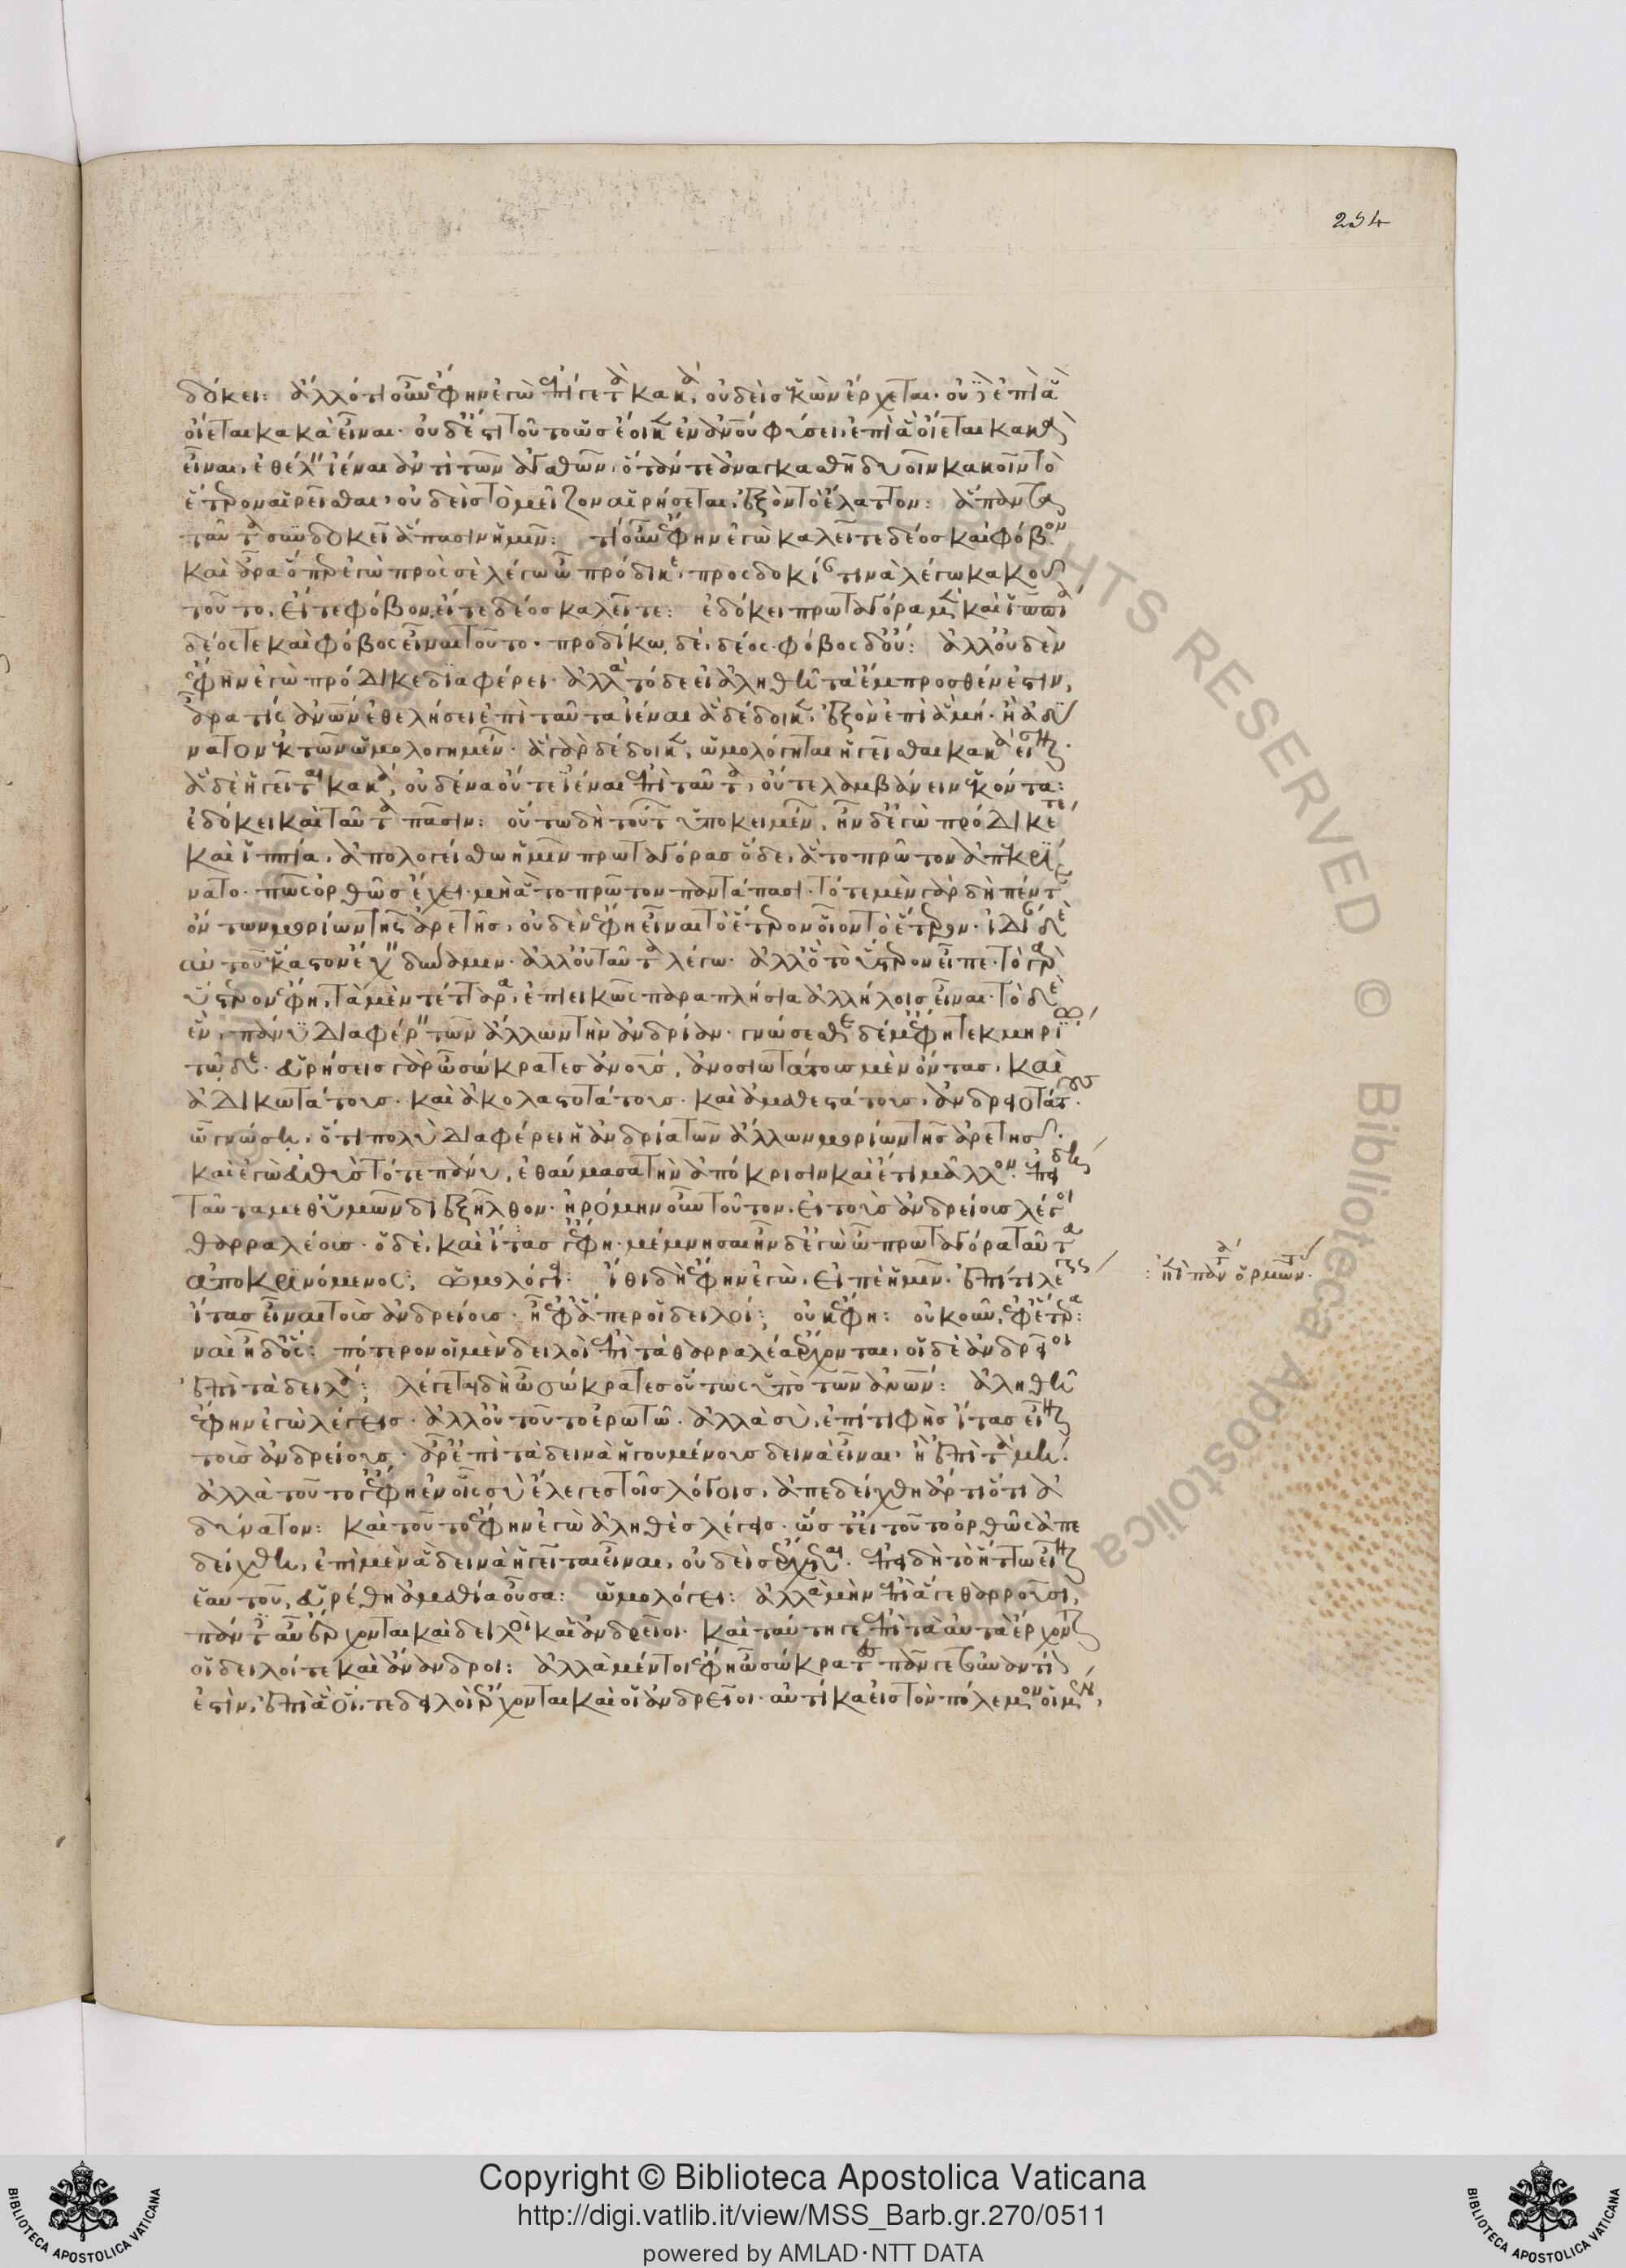 254
δόκει: ἄλλό τι οὖν ἔφην ἐγὼ ἐπί γε τὰ κακὰ, οὐδεὶς ἑκὼν ἔρχεται· οὐδὲ ἐπὶ ἃ
οἴεται κακὰ εἶναι· οὐδέ ἐστι τοῦτο ὡς ἔοικεν ἐν ἀνθρώπου φύσει, ἐπὶ ἃ οἴεται κακὰ
εἶναι, ἐθέλειν ἰέναι ἀντὶ τῶν ἀγαθῶν, ὅταν τε ἀναγκασθῆ δυοῖν κακοῖν τὸ
ἕτερον αἱρεῖσθαι, οὐδεὶς τὸ μεῖζον αἱρήσεται, ἐξὸν τὸ ἔλαττον: ἅπαντα
ταῦτα συνδοκεῖ ἅπασιν ἡμῖν: τί οὖν ἔφην ἐγὼ καλεῖτε δέος καὶ φόβον
καὶ ἆρα ὅπερ ἐγὼ πρὸς σὲ λέγω ὦ πρόδικε, προσδοκίαν τινὰ λέγω κακοῦ
τοῦτο, εἴτε φόβον, εἴτε δέος καλεῖτε: ἐδόκει πρωταγόρα μὲν καὶ ἱππία
δέος τε καὶ φόβος εἶναι τοῦτο· προδίκω δὲ, δέος· φόβος δ' οὔ: ἀλλ' οὐδὲν
ἔφην ἐγὼ πρόδικε διαφέρει· ἀλλὰ τόδε εἰ ἀληθῆ τὰ ἔμπροσθέν ἐστιν,
ἆρα τίς ἀνθρώπων ἐθελήσει ἐπὶ ταῦτα ἰέναι ἃ δέδοικεν, ἐξὸν ἐπὶ ἃ μή· ἢ ἀδύ
νατον ἐκ τῶν ὡμολογημένων· ἃ γὰρ δέδοικεν, ὡμολόγηται ἡγεῖσθαι κακὰ εἶναι·
ἃ δὲ ἡγεῖται κακὰ, οὐδένα οὔτε ἰέναι ἐπὶ ταῦτα, οὔτε λαμβάνειν ἑκόντα:
ἐδόκει καὶ ταῦτα πᾶσιν: οὕτω δὴ τούτων ὑποκειμένων, ἦν δ' ἐγὼ πρόδικέ τε
καὶ ἱππία, ἀπολογείσθω ἡμῖν πρωταγόρας ὅδε, ἃ τὸ πρῶτον ἀπεκρί
νατο· πῶς ὀρθῶς ἔχει· μὴ ἃ τὸ πρῶτον παντάπασι· τότε μὲν γὰρ δὴ πέντε
ὄντων μορίων τῆς ἀρετῆς, οὐδὲν ἔφη εἶναι τὸ ἕτερον οἷον τὸ ἕτερον· ἰδίαν δὲ
αὐτοῦ ἕκαστον ἔχειν δύναμιν· ἀλλ' οὐ ταῦτα λέγω· ἀλλ' ἃ τὸ ὕστερον εἶπε· τὸ γὰρ
ὕστερον ἔφη, τὰ μὲν τέτταρα, ἐπιεικῶς παραπλήσια ἀλλήλοις εἶναι· τὸ δὲ
ἓν, πάνυ διαφέρειν τῶν ἄλλων τὴν ἀνδρίαν· γνώσεσθαι δέ μ' ἔφη τεκμηρίω
τῷδε· εὑρήσεις γὰρ ὦ σώκρατες ἀνθρώπους, ἀνοσιωτάτους μὲν ὄντας, καὶ
ἀδικωτάτους· καὶ ἀκολαστοτάτους· καὶ ἀμαθεστάτους, ἀνδρειοτάτους·
ὧ γνώση, ὅτι πολὺ διαφέρει ἡ ἀνδρία τῶν ἄλλων μορίων τῆς ἀρετῆς·
καὶ ἐγὼ εὐθὺς τότε πάνυ, ἐθαύμασα τὴν ἀπόκρισιν καὶ ἔτι μᾶλλον ἐπειδὴ
ταῦτα μεθ' ὑμῶν διεξῆλθον· ἠρόμην οὖν τοῦτον, εἰ τοὺς ἀνδρείους λέγοι
θαρραλέους· ὁ δὲ, καὶ ἴτας γ' ἔφη· μέμνησαι ἦν δ' ἐγὼ ὦ πρωταγόρα ταῦτα
ἀποκρινόμενος; ὡμολόγει: ἴθι δὴ ἔφην ἐγὼ, εἰπὲ ἡμῖν· ἐπὶ τί λέγεις
: ἐπὶ πάντα ὁρμῶντας·
ἴτας εἶναι τοὺς ἀνδρείους· ἦ ἐφ' ἅπερ οἱ δειλοί; οὐκ ἔφη: οὐκοῦν, ἐφ' ἕτερα:
ναὶ ἦ δ' ὅς: πότερον οἱ μὲν δειλοὶ ἐπὶ τὰ θαρραλέα ἔρχονται, οἱ δὲ ἀνδρεῖοι
ἐπὶ τὰ δεινά; λέγεται δὴ ὦ σώκρατες οὕτως ὑπὸ τῶν ἀνθρώπων: ἀληθῆ
ἔφην ἐγὼ λέγεις· ἀλλ' οὐ τοῦτο ἐρωτῶ· ἀλλὰ σὺ, ἐπὶ τί φὴς ἴτας εἶναι
τοὺς ἀνδρείους· ἆρ' ἐπὶ τὰ δεινὰ ἡγουμένους δεινὰ εἶναι, ἢ ἐπὶ τὰ μή:
ἀλλὰ τοῦτο γ' ἔφη ἐν οἷς σὺ ἔλεγες τοῖς λόγοις, ἀπεδείχθη ἄρτι ὅτι ἀ
δύνατον: καὶ τοῦτο ἔφην ἐγὼ ἀληθὲς λέγεις· ὥστ' εἰ τοῦτο ὀρθῶς ἀπε
δείχθη, ἐπὶ μὲν ἃ δεινὰ ἡγεῖται εἶναι, οὐδεὶς ἔρχεται· ἐπειδὴ τὸ ἥττω εἶναι
ἑαυτοῦ, εὑρέθη ἀμαθία οὖσα: ὡμολόγει: ἀλλὰ μὴν ἐπὶ ἅ γε θαρροῦσι,
πάντες αὖ ἔρχονται καὶ δειλοὶ καὶ ἀνδρεῖοι· καὶ ταύτη γε ἐπὶ τὰ αὐτὰ ἔρχονται
οἱ δειλοί τε καὶ οἱ ἀνδρεῖοι: ἀλλὰ μέντοι ἔφη ὦ σώκρατες πᾶν γε τοὐναντίον
ἐστὶν, ἐπὶ ἃ οἵ τε δειλοὶ ἔρχονται καὶ οἱ ἀνδρεῖοι· αὐτίκα εἰς τὸν πόλεμον οἱ μὲν,
Copyright © Biblioteca Apostolica Vaticana
http://digi.vatlib.it/view/MSS_Barb.gr.270/0511
powered by AMLAD·NTT DATA